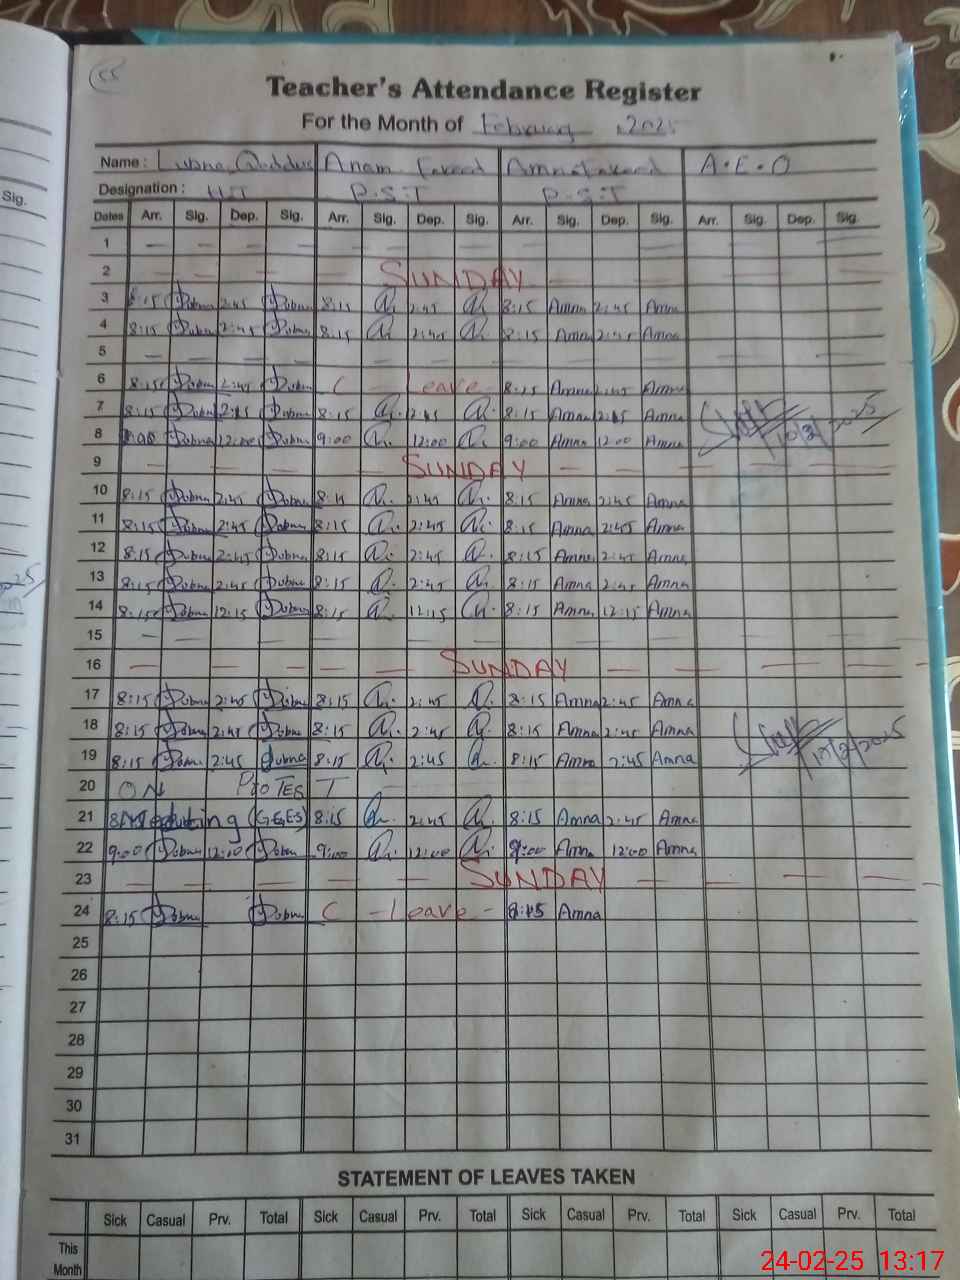 55
Teacher's Attendance Register
For the Month of February 2025
Sig.
Name : Lubna Quddus Anam Fareed Amna Fareed A.E.O
Designation : P.S.T P.S.T
Dates Arr. Sig. Dep. Sig. Arr. Sig. Dep. Sig. Arr. Sig. Dep. Sig. Arr. Sig. Dep. Sig.
1 — — — — — — — — — — — —
2 — — — SUNDAY — — — —
3 8:15 Lubna 2:45 Lubna 8:15 2:45 8:15 Amna 2:45 Amna
4 8:15 Lubna 2:45 Lubna 8:15 2:45 8:15 Amna 2:45 Amna
5 — — — — — — — — — — — —
6 8:15 Lubna 2:45 Lubna C - Leave - 8:15 Amna 2:45 Amna
7 8:15 Lubna 2:45 Lubna 8:15 2:45 8:15 Amna 2:45 Amna
8 Lubna 12:00 Lubna 9:00 12:00 9:00 Amna 12:00 Amna 10/2/2025
9 — — — — SUNDAY — — — —
10 8:15 Lubna 2:45 Lubna 8:15 2:45 8:15 Amna 2:45 Amna
11 8:15 Lubna 2:45 Lubna 8:15 2:45 8:15 Amna 2:45 Amna
12 8:15 Lubna 2:45 Lubna 8:15 2:45 8:15 Amna 2:45 Amna
13 8:15 Lubna 2:45 Lubna 8:15 2:45 8:15 Amna 2:45 Amna
14 8:15 Lubna 12:15 Lubna 8:15 12:15 8:15 Amna 12:15 Amna
15 — — — — — — — — — — — —
16 — — — — — — SUNDAY — — — —
17 8:15 Lubna 2:45 Lubna 8:15 2:45 8:15 Amna 2:45 Amna
18 8:15 Lubna 2:45 Lubna 8:15 2:45 8:15 Amna 2:45 Amna
19 8:15 Lubna 2:45 Lubna 8:15 2:45 8:15 Amna 2:45 Amna 17/2/2025
20 ON PROTEST
21 Meeting (GGES) 8:15 2:45 8:15 Amna 2:45 Amna
22 9:00 Lubna 12:00 Lubna 9:00 12:00 9:00 Amna 12:00 Amna
23 — — — — — — SUNDAY — — — —
24 8:15 Lubna Lubna C - Leave - 8:15 Amna
25
26
27
28
29
30
31
STATEMENT OF LEAVES TAKEN
Sick Casual Prv. Total Sick Casual Prv. Total Sick Casual Prv. Total Sick Casual Prv. Total
This
Month
24-02-25 13:17